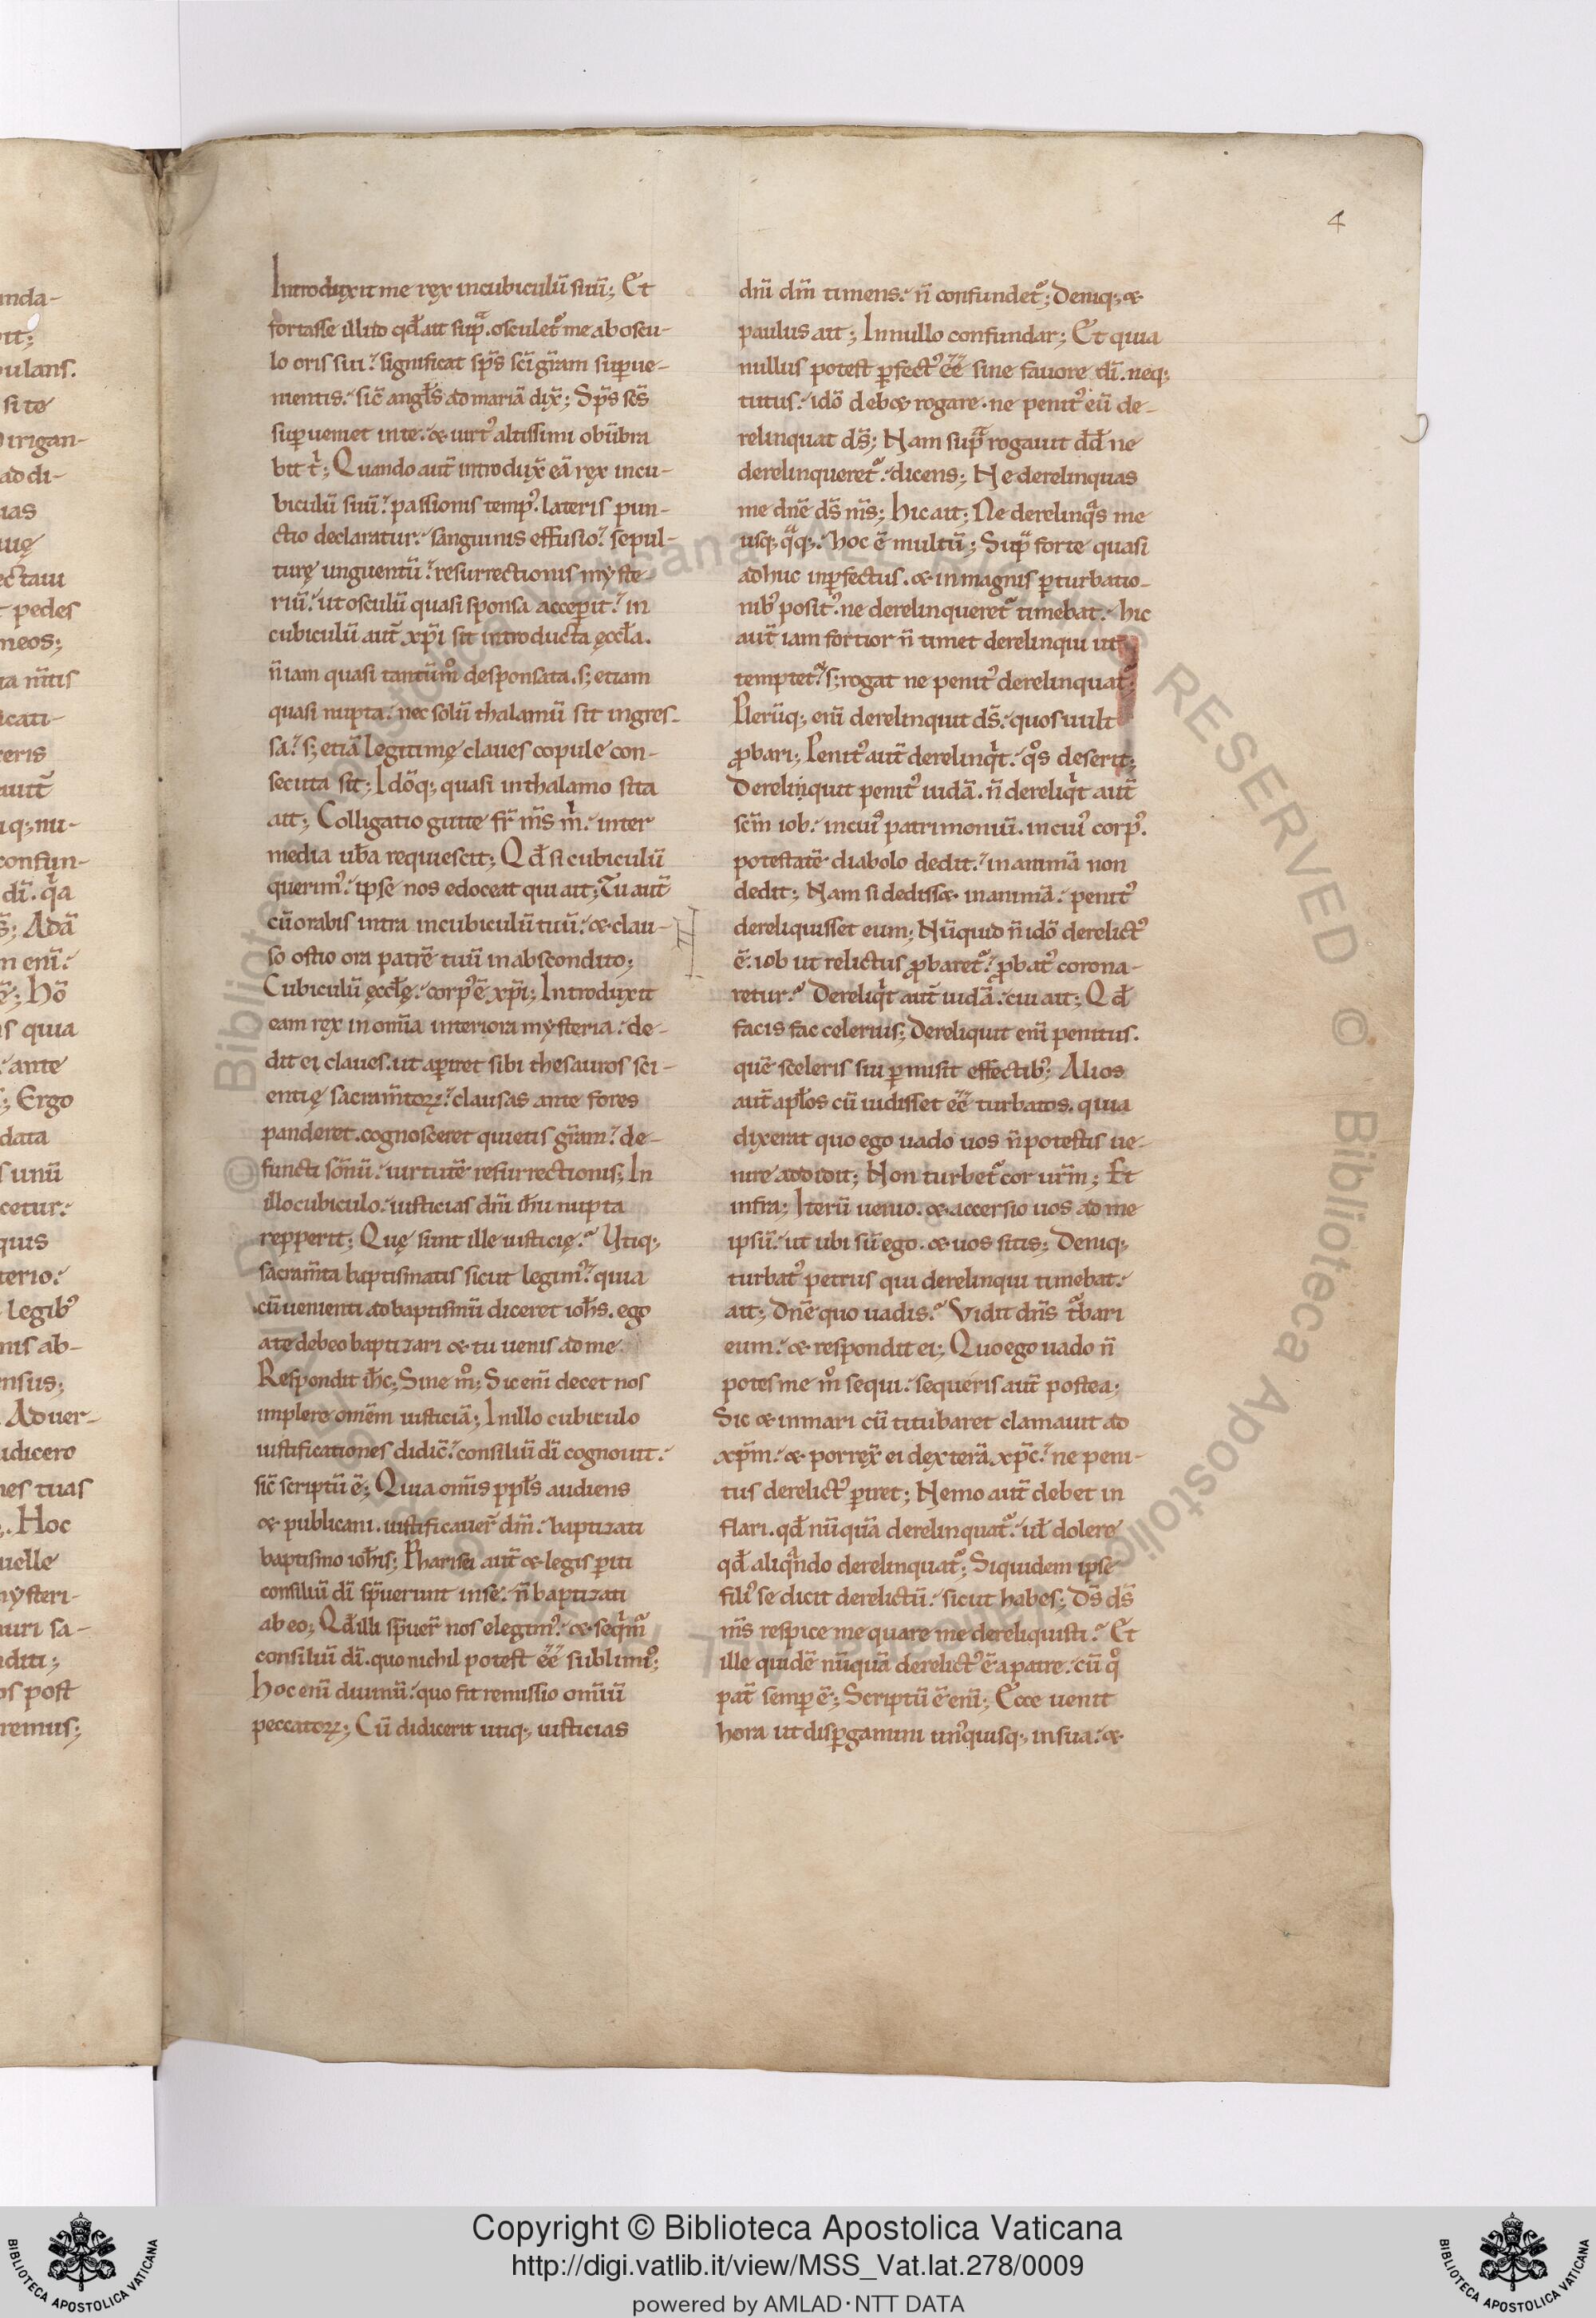 4
Introduxit me rex incubiculũ suũ; Et
fortasse illud qđ ait sup̃. osculet᷑ me ab oscu-
lo oris sui. significat sp̃s sc̃i gr̃am sup̱ue-
nientis. sic̃ angl̃s ad mariã dix̃; Sp̃s sc̃s
sup̱ueniet inte. & uirt᷒ altissimi obũbra
bit t̾; Quando aut̃ introdux̃ eã rex incu-
biculũ suũ. passionis temp᷒. lateris pun-
ctio declaratur. sanguinis effusio. sepul-
turę unguentũ. resurrectionis myste-
riũ. ut osculũ quasi sponsa accep̱it. in
cubiculũ aut̃ xp̃i sit introducta ęccła.
ñ iam quasi tantũm̊ desponsata. s; etiam
quasi nupta. nec solũ thalamũ sit ingres-
sa. s; etiã legitimę claues copule con-
secuta sit; Idõq; quasi inthalamo sita
ait; Colligatio gutte fr̃ m̃s m̾. inter
media ub̃a requiescit; Qđ si cubiculũ
querim᷒. ipse nos edoceat qui ait; Tu aut̃
cũ orabis intra incubiculũ tuũ. & clau-
so ostio ora patrẽ tuũ inabscondito;
Cubiculũ ęccłę. corp᷒ ẽ xp̃i; Introduxit
eam rex in om̃ia interiora mysteria. de-
dit ei claues. ut ap̱iret sibi thesauros sci-
entię sacram̃toꝝ. clausas ante fores
panderet. cognosceret quietis gr̃am. de-
functi sõnũ. uirtutẽ resurrectionis; In
illo cubiculo. iusticias dñi ih̃u nupta
repperit; Quę sunt ille iusticię. Utiq;
sacram̃ta baptismatis sicut legim᷒. quia
cũ uenienti ad baptismũ diceret ioh̃s. ego
a te debeo baptizari & tu uenis ad me
Respondit ih̃c; Sine m̊; Sic eñi decet nos
implere om̃em iusticiã; In illo cubiculo
iustificationes didic̃. consiliũ dĩ cognouit.
sic̃ scriptũ ẽ; Quia om̃s ppłs audiens
& publicani. iustificauer̃ dm̃. baptizati
baptismo ioh̃is; Pharisei aut̃ & legis p̱iti
consiliũ dĩ sp̃uerunt inse. ñ baptizati
ab eo; Qđ illi sp̃uer̃ nos elegim᷒. & seq̾m᷑
consiliũ dĩ. quo nichil potest ẽẽ sublimi᷒;
Hoc eñi diuinũ. quo fit remissio om̃iũ
peccatoꝝ; Cũ didicerit utiq; iusticias
dñi dm̃ timens. ñ confundet᷑; Deniq; &
paulus ait; Innullo confundar; Et quia
nullus potest p̱fect᷒ ẽẽ sine fauore dĩ. neq;
tutus. idõ deb& rogare. ne penit᷒ eũ de-
relinquat ds̃; Nam sup̃ rogauit dđ ne
derelinqueret᷑. dicens; Ne derelinquas
me dñe ds̃ m̃s; hic ait; Ne derelinq̃s me
usq; q̃q;. hoc ẽ multũ; Sup̃ forte quasi
adhuc inp̱fectus. & inmagnis p̱turbatio-
nib᷒ posit᷒. ne derelinqueret᷑ timebat. hic
aut̃ iam fortior ñ timet derelinqui ut
temptet᷑. s; rogat ne penit᷒ derelinquat᷑;
Plerũq; eñi derelinquit ds̃. quos uult
ꝓbari; Penit᷒ aut̃ derelinq̾t. q̊s deserit;
Derelinquit penit᷒ iudã. ñ dereliq̾t aut̃
scm̃ iob. incui᷒ patrimoniũ. incui᷒ corp᷒.
potestatẽ diabolo dedit. inanimã non
dedit; Nam si dediss& inanimã. penit᷒
dereliquisset eum; Nũquid ñ idõ derelict᷒
ẽ. iob ut relictus ꝓbaret᷑. ꝓbat᷒ corona-
retur. Dereliq̾t aut̃ iudã. cui ait; Qđ
facis fac celerius; Dereliquit eñi penitus.
quẽ sceleris sui p̱misit effectib᷒; Alios
aut̃ apłos cũ uidisset ẽẽ turbatos. quia
dixerat quo ego uado uos ñ potestis ue-
nire addidit; Non turbet᷑ cor ur̃m; Et
infra; Iterũ uenio. & accersio uos ad me
ipsũ. ut ubi sũ ego. & uos sitis; Deniq;
turbat᷒ petrus qui derelinqui timebat.
ait; Dñe quo uadis. Vidit dñs t᷑bari
eum. & respondit ei; Quo ego uado ñ
potes me m̊ sequi. sequeris aut̃ postea;
Sic & inmari cũ titubaret clamauit ad
xp̃m. & porrex̃ ei dexterã xp̃c. ne peni-
tus derelict᷒ p̱iret; Nemo aut̃ debet in
flari. qđ nũquã derelinquat᷑. ul̃ dolere
qđ aliq̃ndo derelinquat᷑; Siquidem ipse
fili᷒ se dicit derelictũ. sicut habes; Ds̃ ds̃
m̃s respice me quare me dereliquisti. Et
ille quidẽ nũquã derelict᷒ ẽ a patre. cũ q̊
pat̃ semp̱ ẽ; Scriptũ ẽ eñi; Ecce uenit
hora ut disp̱gamini un᷒quisq; insua. &
Copyright © Biblioteca Apostolica Vaticana
http://digi.vatlib.it/view/MSS_Vat.lat.278/0009
powered by AMLAD·NTT DATA